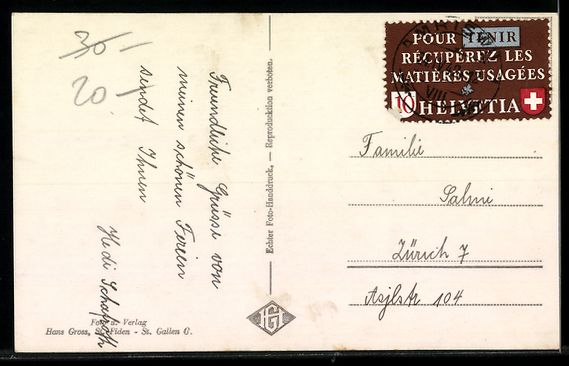 30 1
20.
Freundliche Grüsse von
meinen schönen Ferien
sendet Ihnen
Hedi
Foto u. Verlag
Hans Gross, - St. Gallen C.
Echter Foto-Handdruck. — Reproduktion verboten.
HG
POUR TENIR
RÉCUPÉREZ LES
MATIÈRES USAGÉES
10 HELVETIA
VIII
Familie
Salmi
Zürich 7
Asylstr 104